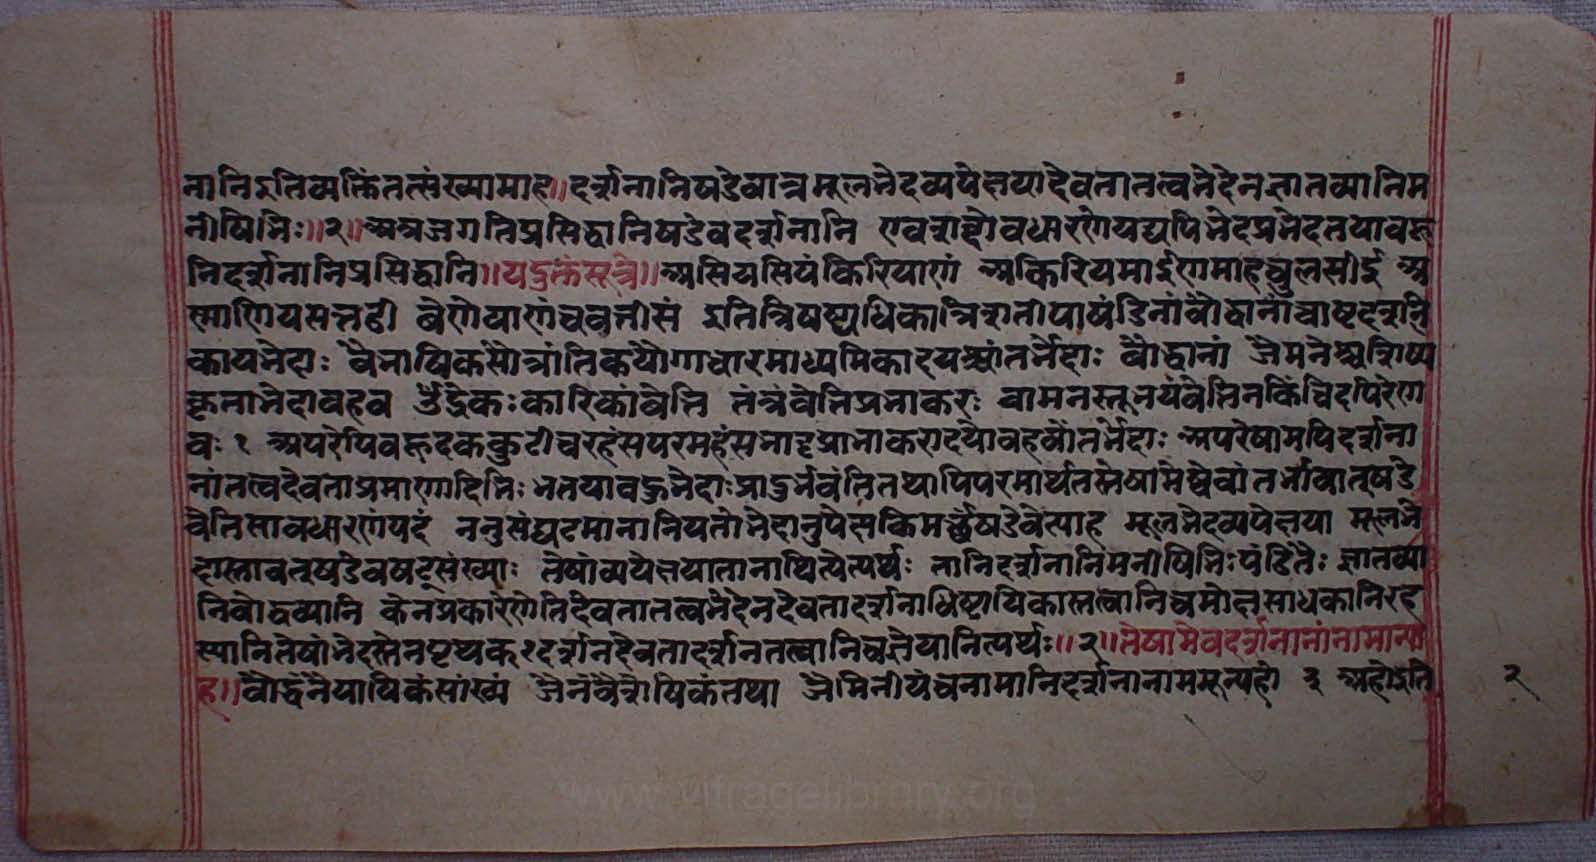 नानिइतिव्यक्तिंतत्संख्यामाह॥दर्शनानिषडेवात्रमूलभेदव्यपेक्षयादेवतातत्वभेदेनज्ञातव्यानिम
नीषिभिः॥२॥अत्रजगतिप्रसिद्धानिषडेवदर्शनानि एवशब्दोवधारणेयद्यपिभेदप्रभेदतयाबहू
निदर्शनानिप्रसिद्धानि॥यदुक्तंसूत्रे॥असियसियंकिरियाणं अकिरियमाईणमाहचुलसीई अ
न्नाणियसत्तठी वेणेयाणंचबत्तीसं इतित्रिषष्ट्यधिकात्रिशतीपाषंडिनांबौद्धानांचाष्टदशनि
कायभेदाः वैभाषिकसौत्रांतिकयौगाचारमाध्यमिकादयश्चांतर्भेदाः बौद्धानां जैमनेश्चशिष्य
कृताभेदाबहव उंद्वेकःकारिकांवेत्ति तंत्रंवेत्तिप्रभाकरः वामनस्तूभयंवेत्तिनकिंचिदपिरेण
वः १ अपरेपिबहूदककुटीचरहंसपरमहंसभाट्टप्राभाकरादयोबहवोंतर्भेदाः अपरेषामपिदर्शना
नांतत्वदेवताप्रमाणादिभिन्नतयाबहुभेदाःप्रादुर्भवंतितथापिपरमार्थतस्तेषामेष्वेवांतर्भावात्षडे
वेतिसावधारणंपदं ननुसंघटमानानियतोभेदानुपेक्ष्यकिमर्थंषडेवेत्याह मूलभेदव्यपेक्षया मूलभे
दास्तावत्षडेवषट्संख्याः तेषांव्यपेक्षयातानाश्रित्येत्यर्थः तानिदर्शनानिमनीषिभिःपंडितैः ज्ञातव्या
निबोद्धव्यानि केनप्रकारेणेतिदेवतातत्वभेदेनदेवतादर्शनाधिष्टायिकास्तत्वानिचमोक्षसाधकानिरह
स्यानितेषांभेदस्तेनपृथक्२दर्शनदेवतादर्शनतत्वानिचज्ञेयानीत्यर्थः॥२॥तेषामेवदर्शनानांनामान्या
ह॥बौद्धंनैयायिकंसांख्यं जैनंवैशेषिकंतथा जैमिनीयंचनामानिदर्शनानाममून्यहो ३ अहोइति
२
www.vitragelibrary.org